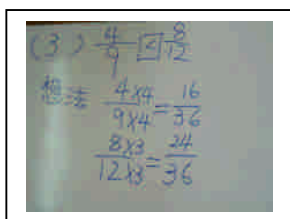 (3) 4/9 [<] 8/12
想法 4×4/9×4 = 16/36
8×3/12×3 = 24/36